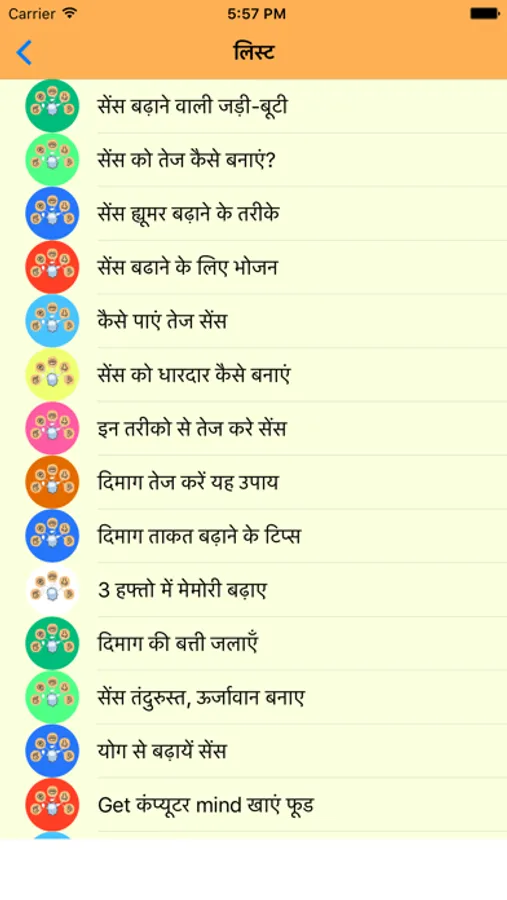 Carrier 5:57 PM
लिस्ट
सेंस बढ़ाने वाली जड़ी-बूटी
सेंस को तेज कैसे बनाएं?
सेंस ह्यूमर बढ़ाने के तरीके
सेंस बढाने के लिए भोजन
कैसे पाएं तेज सेंस
सेंस को धारदार कैसे बनाएं
इन तरीको से तेज करे सेंस
दिमाग तेज करें यह उपाय
दिमाग ताकत बढ़ाने के टिप्स
3 हफ्तो में मेमोरी बढ़ाए
दिमाग की बत्ती जलाएँ
सेंस तंदुरुस्त, ऊर्जावान बनाए
योग से बढ़ायें सेंस
Get कंप्यूटर mind खाएं फूड